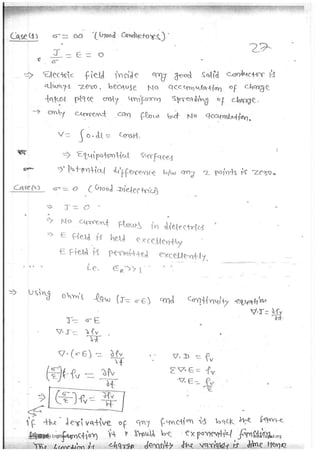 Case(1) σ = ∞ (Good Conductors)
27
J/σ = E = 0
⇒ Electric field inside any good solid conductor is
always zero, because No accumulation of charge
takes place only uniform spreading of charge.
→ only current can flow but No accumulation.
V = ∫0·dl = const.
⇒ Equipotential surfaces
⇒ Potential difference b/w any 2 points is zero.
Case(2) σ = 0 (Good Dielectrics)
⇒ J = 0
⇒ No current flows in dielectrics
⇒ E field is held excellently
E field is permitted excellently.
i.e. ∈R >> 1
⇒ Using ohm's law (J = σE) and Continuity equation
∇·J = ∂ρv/∂t
J = σE
∇·J = ∂ρv/∂t
∇·(σE) = ∂ρv/∂t ∇·D = ρv
(σ/ε) ρv = ∂ρv/∂t ε∇·E = ρv
∇·E = ρv/ε
⇒ (σ/ε) ρv = ∂ρv/∂t
if the derivative of any function is back the same
function it should be exponential function
The function is charge density the variable is time